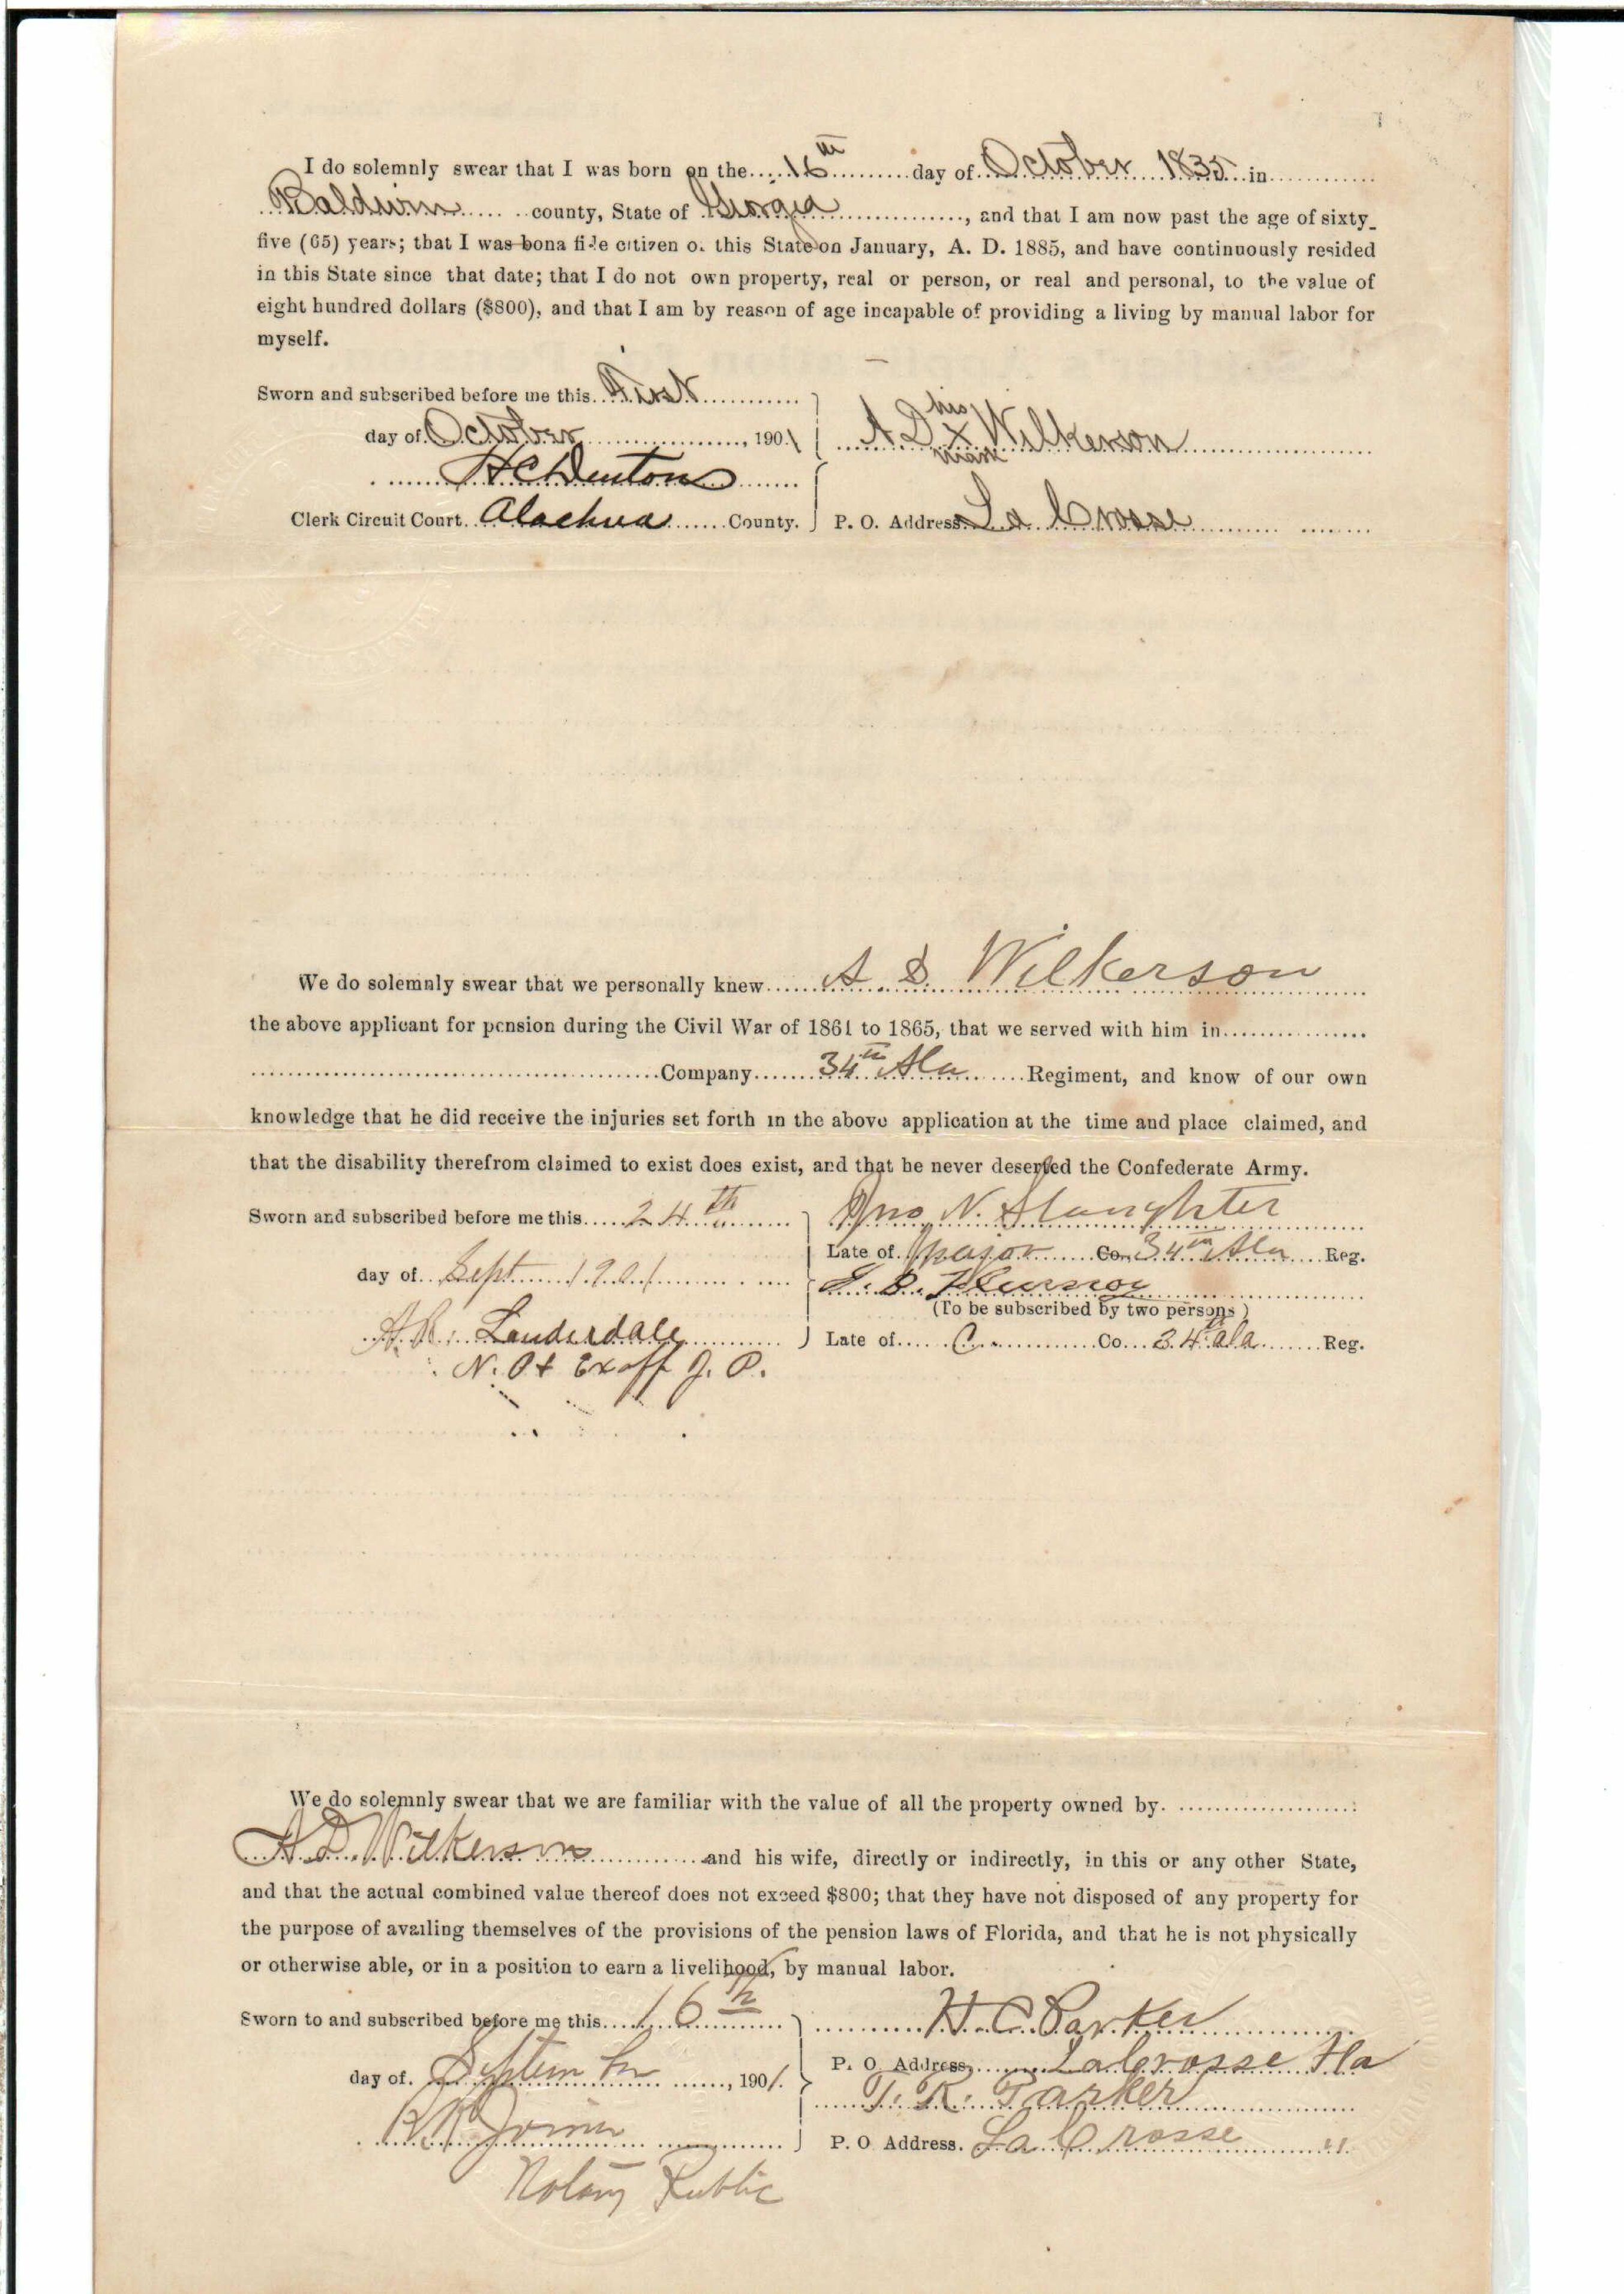 I do solemnly swear that I was born on the 16th day of October 1835 in
Baldwin county, State of Georgia, and that I am now past the age of sixty-
five (65) years; that I was bona fide citizen of this State on January, A. D. 1885, and have continuously resided
in this State since that date; that I do not own property, real or person, or real and personal, to the value of
eight hundred dollars ($800), and that I am by reason of age incapable of providing a living by manual labor for
myself.
Sworn and subscribed before me this First
day of October, 1901
H C Denton
Clerk Circuit Court Alachua County.
A D his x mark Wilkerson
P. O. Address La Crosse
We do solemnly swear that we personally knew A. D. Wilkerson
the above applicant for pension during the Civil War of 1861 to 1865, that we served with him in
Company 34th Ala Regiment, and know of our own
knowledge that he did receive the injuries set forth in the above application at the time and place claimed, and
that the disability therefrom claimed to exist does exist, and that he never deserted the Confederate Army.
Sworn and subscribed before me this 24th
day of Sept 1901
A. R. Lauderdale
N. P & Ex off J. P.
Jno N. Slaughter
Late of Major Co. 34th Ala Reg.
(To be subscribed by two persons)
Late of C. Co 34th ala Reg.
We do solemnly swear that we are familiar with the value of all the property owned by
A. D. Wilkerson and his wife, directly or indirectly, in this or any other State,
and that the actual combined value thereof does not exceed $800; that they have not disposed of any property for
the purpose of availing themselves of the provisions of the pension laws of Florida, and that he is not physically
or otherwise able, or in a position to earn a livelihood, by manual labor.
Sworn to and subscribed before me this 16th
day of September, 1901.
R R Joiner
Notary Public
H. C. Parker
P. O. Address LaCrosse Fla
T. R. Parker
P. O Address. La Crosse "